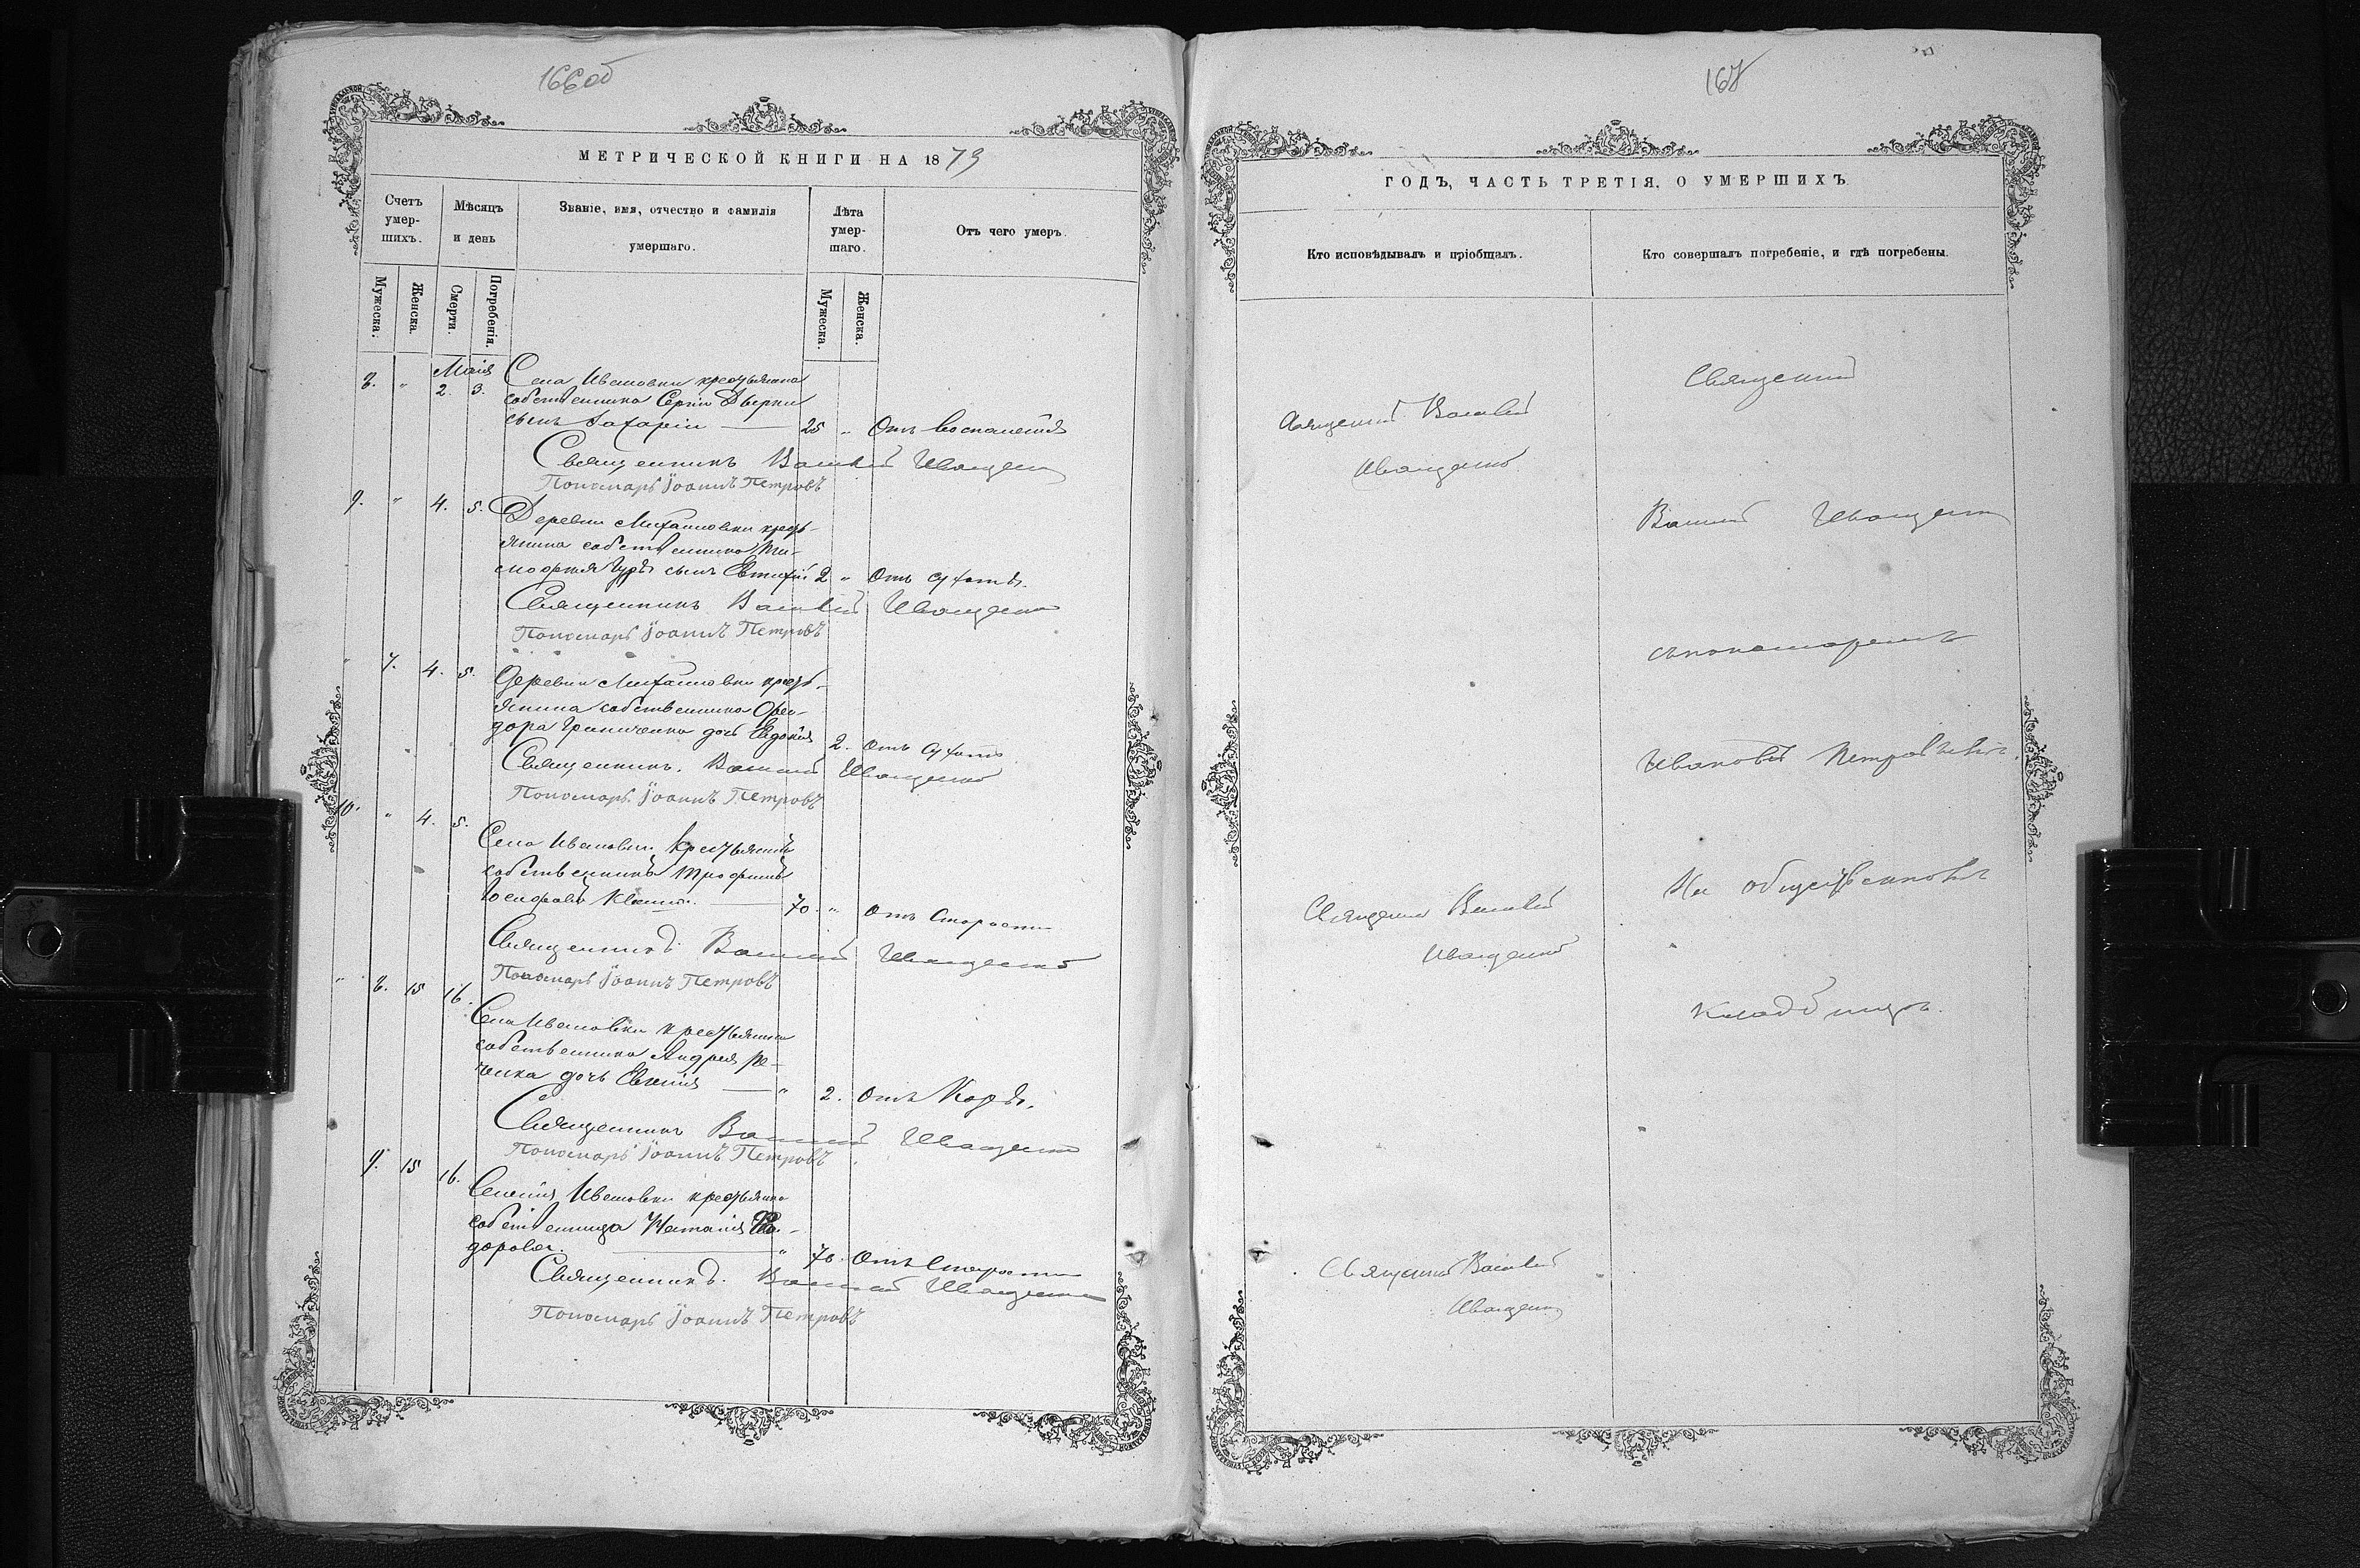 166об
МЕТРИЧЕСКОЙ КНИГИ НА 1873
Счетъ умер-шихъ.
Мѣсяцъ и день
Званіе, имя, отчество и фамилія умершаго.
Лѣта умер-шаго.
Отъ чего умеръ.
Мужеска.
Женска.
Смерти.
Погребенія.
Мужеска.
Женска.
Маія
8. " 2. 3. Села Ивановки крестьянина
собственника Сергія
сынъ Захарія — 25 " Отъ воспаленія
Священникъ Василій Иващенко
Пономарь Іоаннъ Петровъ
9. " 4. 5. Деревни Михайловки кресть-
янина собственника Ти-
мофея сынъ Евтихій 2 "
Священникъ Василій Иващенко
Пономарь Іоаннъ Петровъ
" 7. 4. 5. Деревни Михайловки кресть-
янина собственника Ѳео-
дора Гриниченка дочь Евдокія 2.
Священникъ Василій Иващенко
Пономарь Іоаннъ Петровъ
10. " 4. 5. Села Ивановки Крестьянинъ
собственникъ Трофимъ
70. " Отъ Старости
Священникъ Василій Иващенко
Пономарь Іоаннъ Петровъ
" 8. 15 16. Села Ивановки крестьянина
собственника Андрея Ре-
ченка дочь Евгенія — " 2. Отъ Кори.
Священникъ Василій Иващенко
Пономарь Іоаннъ Петровъ
9. 15 16. Селенія Ивановки крестьянка
собственница Наталія Ѳео-
дорова. — " 70. Отъ Старости
Священникъ Василій Иващенко
Пономарь Іоаннъ Петровъ
167
ГОДЪ, ЧАСТЬ ТРЕТІЯ, О УМЕРШИХЪ
Кто исповѣдывалъ и пріобщалъ.
Кто совершалъ погребеніе, и гдѣ погребены.
Священникъ
Священникъ Василій
Иващенко
Василій Иващенко
съ пономаремъ
Ивановъ Петровымъ
На общественномъ
Священникъ Василій
Иващенко
кладбищѣ.
Священникъ Василій
Иващенко